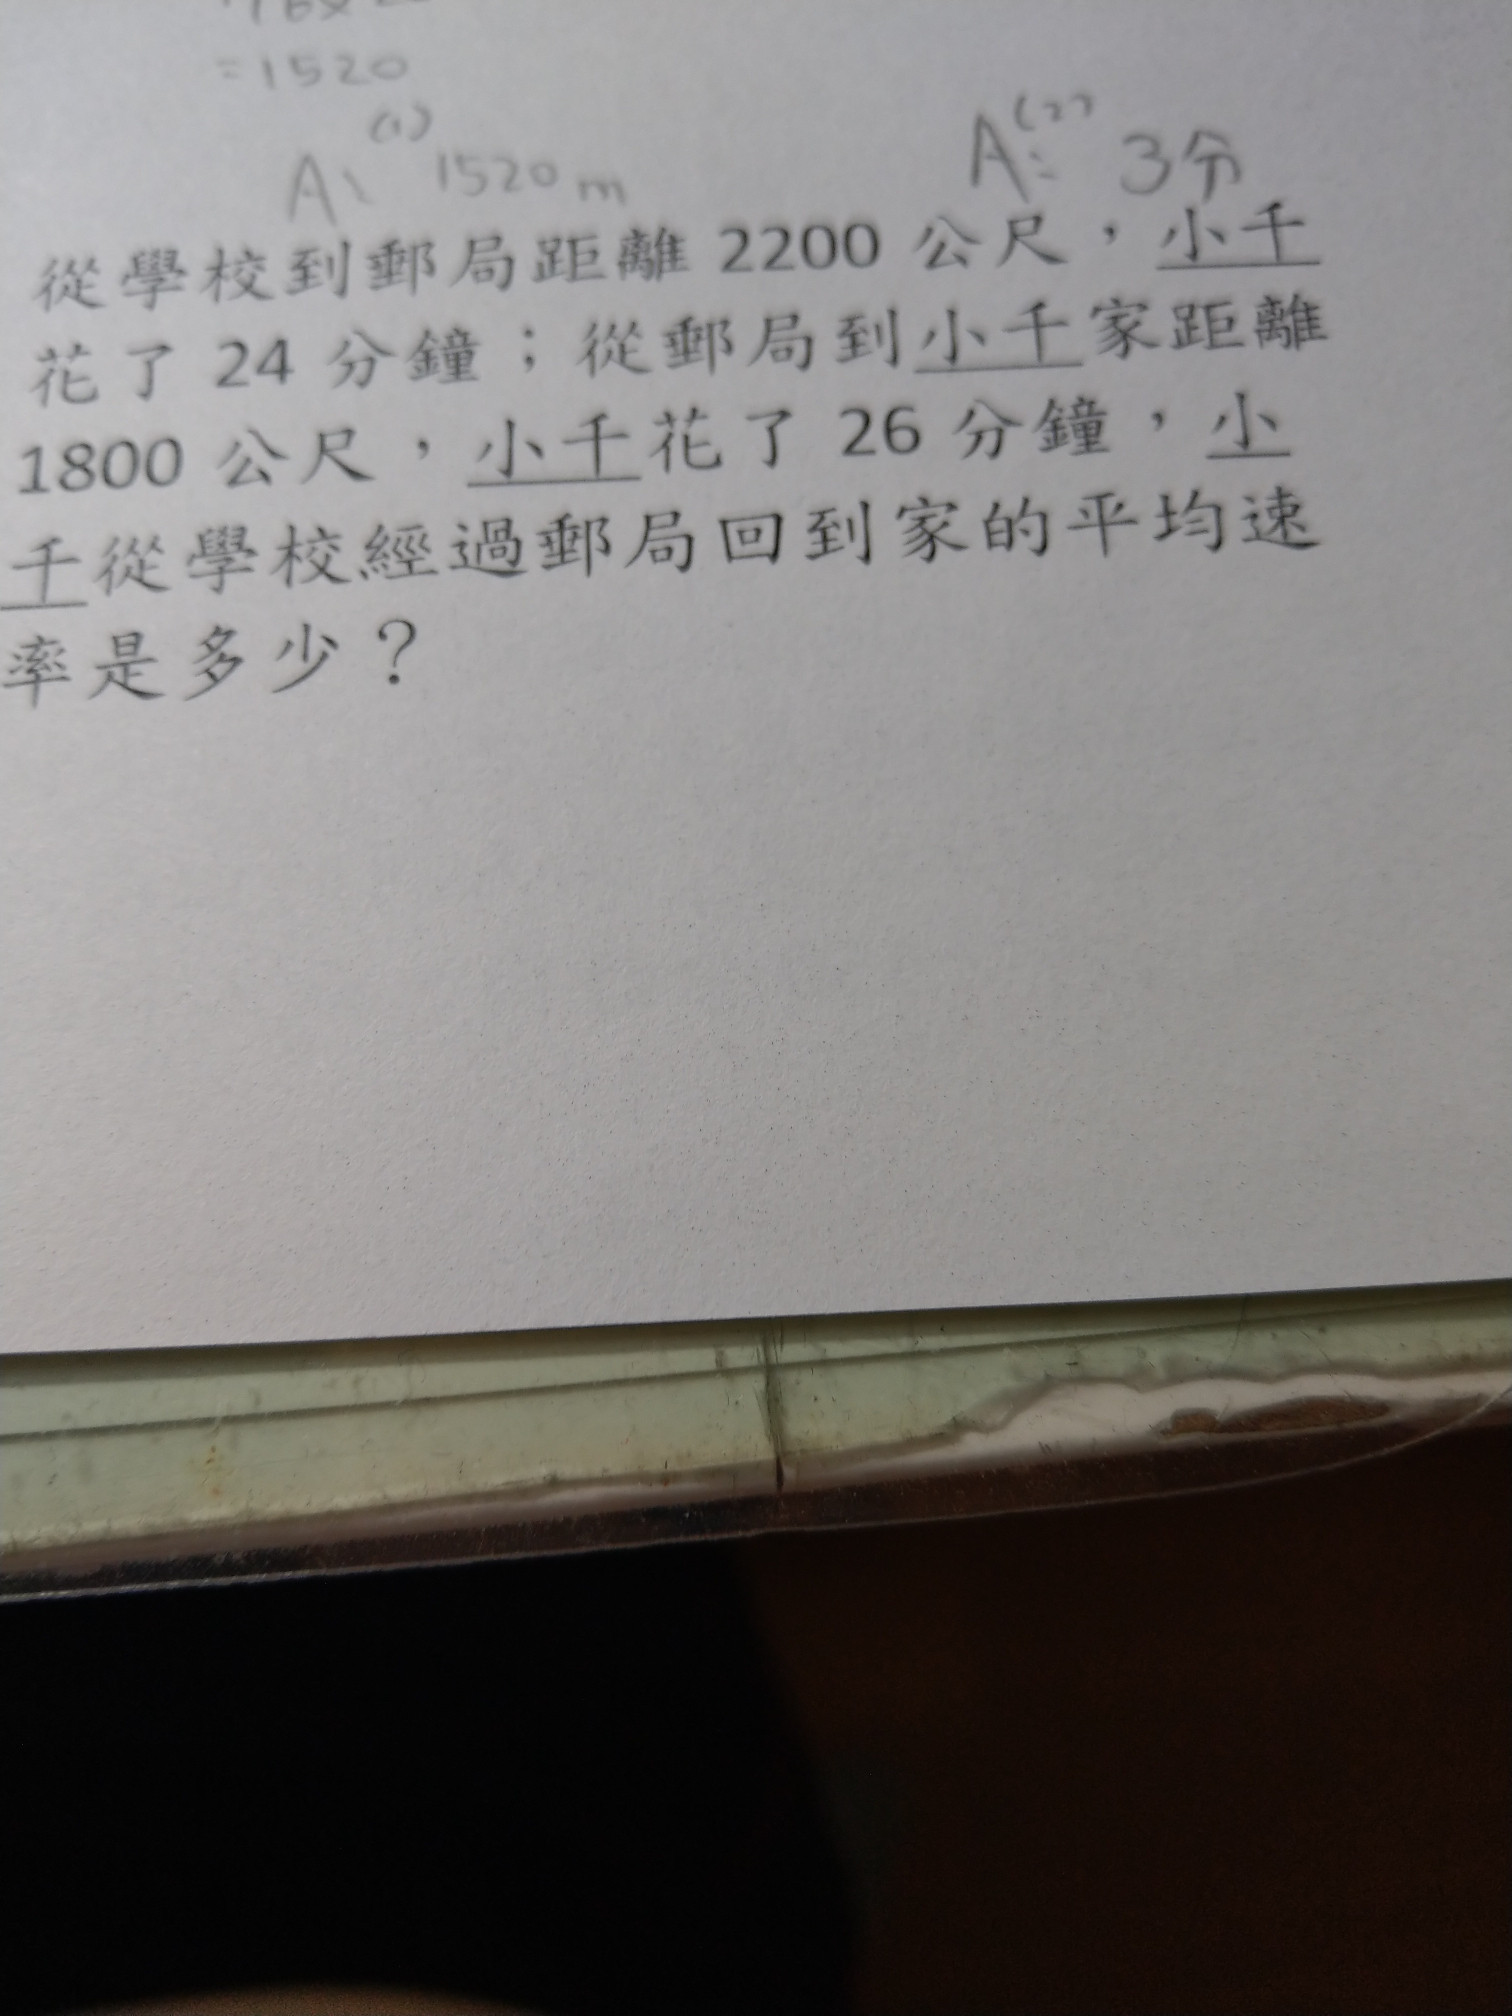 =1520
(1)
A、 1520 m
(2)
A: 3分
從學校到郵局距離 2200 公尺，小千
花了 24 分鐘；從郵局到小千家距離
1800 公尺，小千花了 26 分鐘，小
千從學校經過郵局回到家的平均速
率是多少？